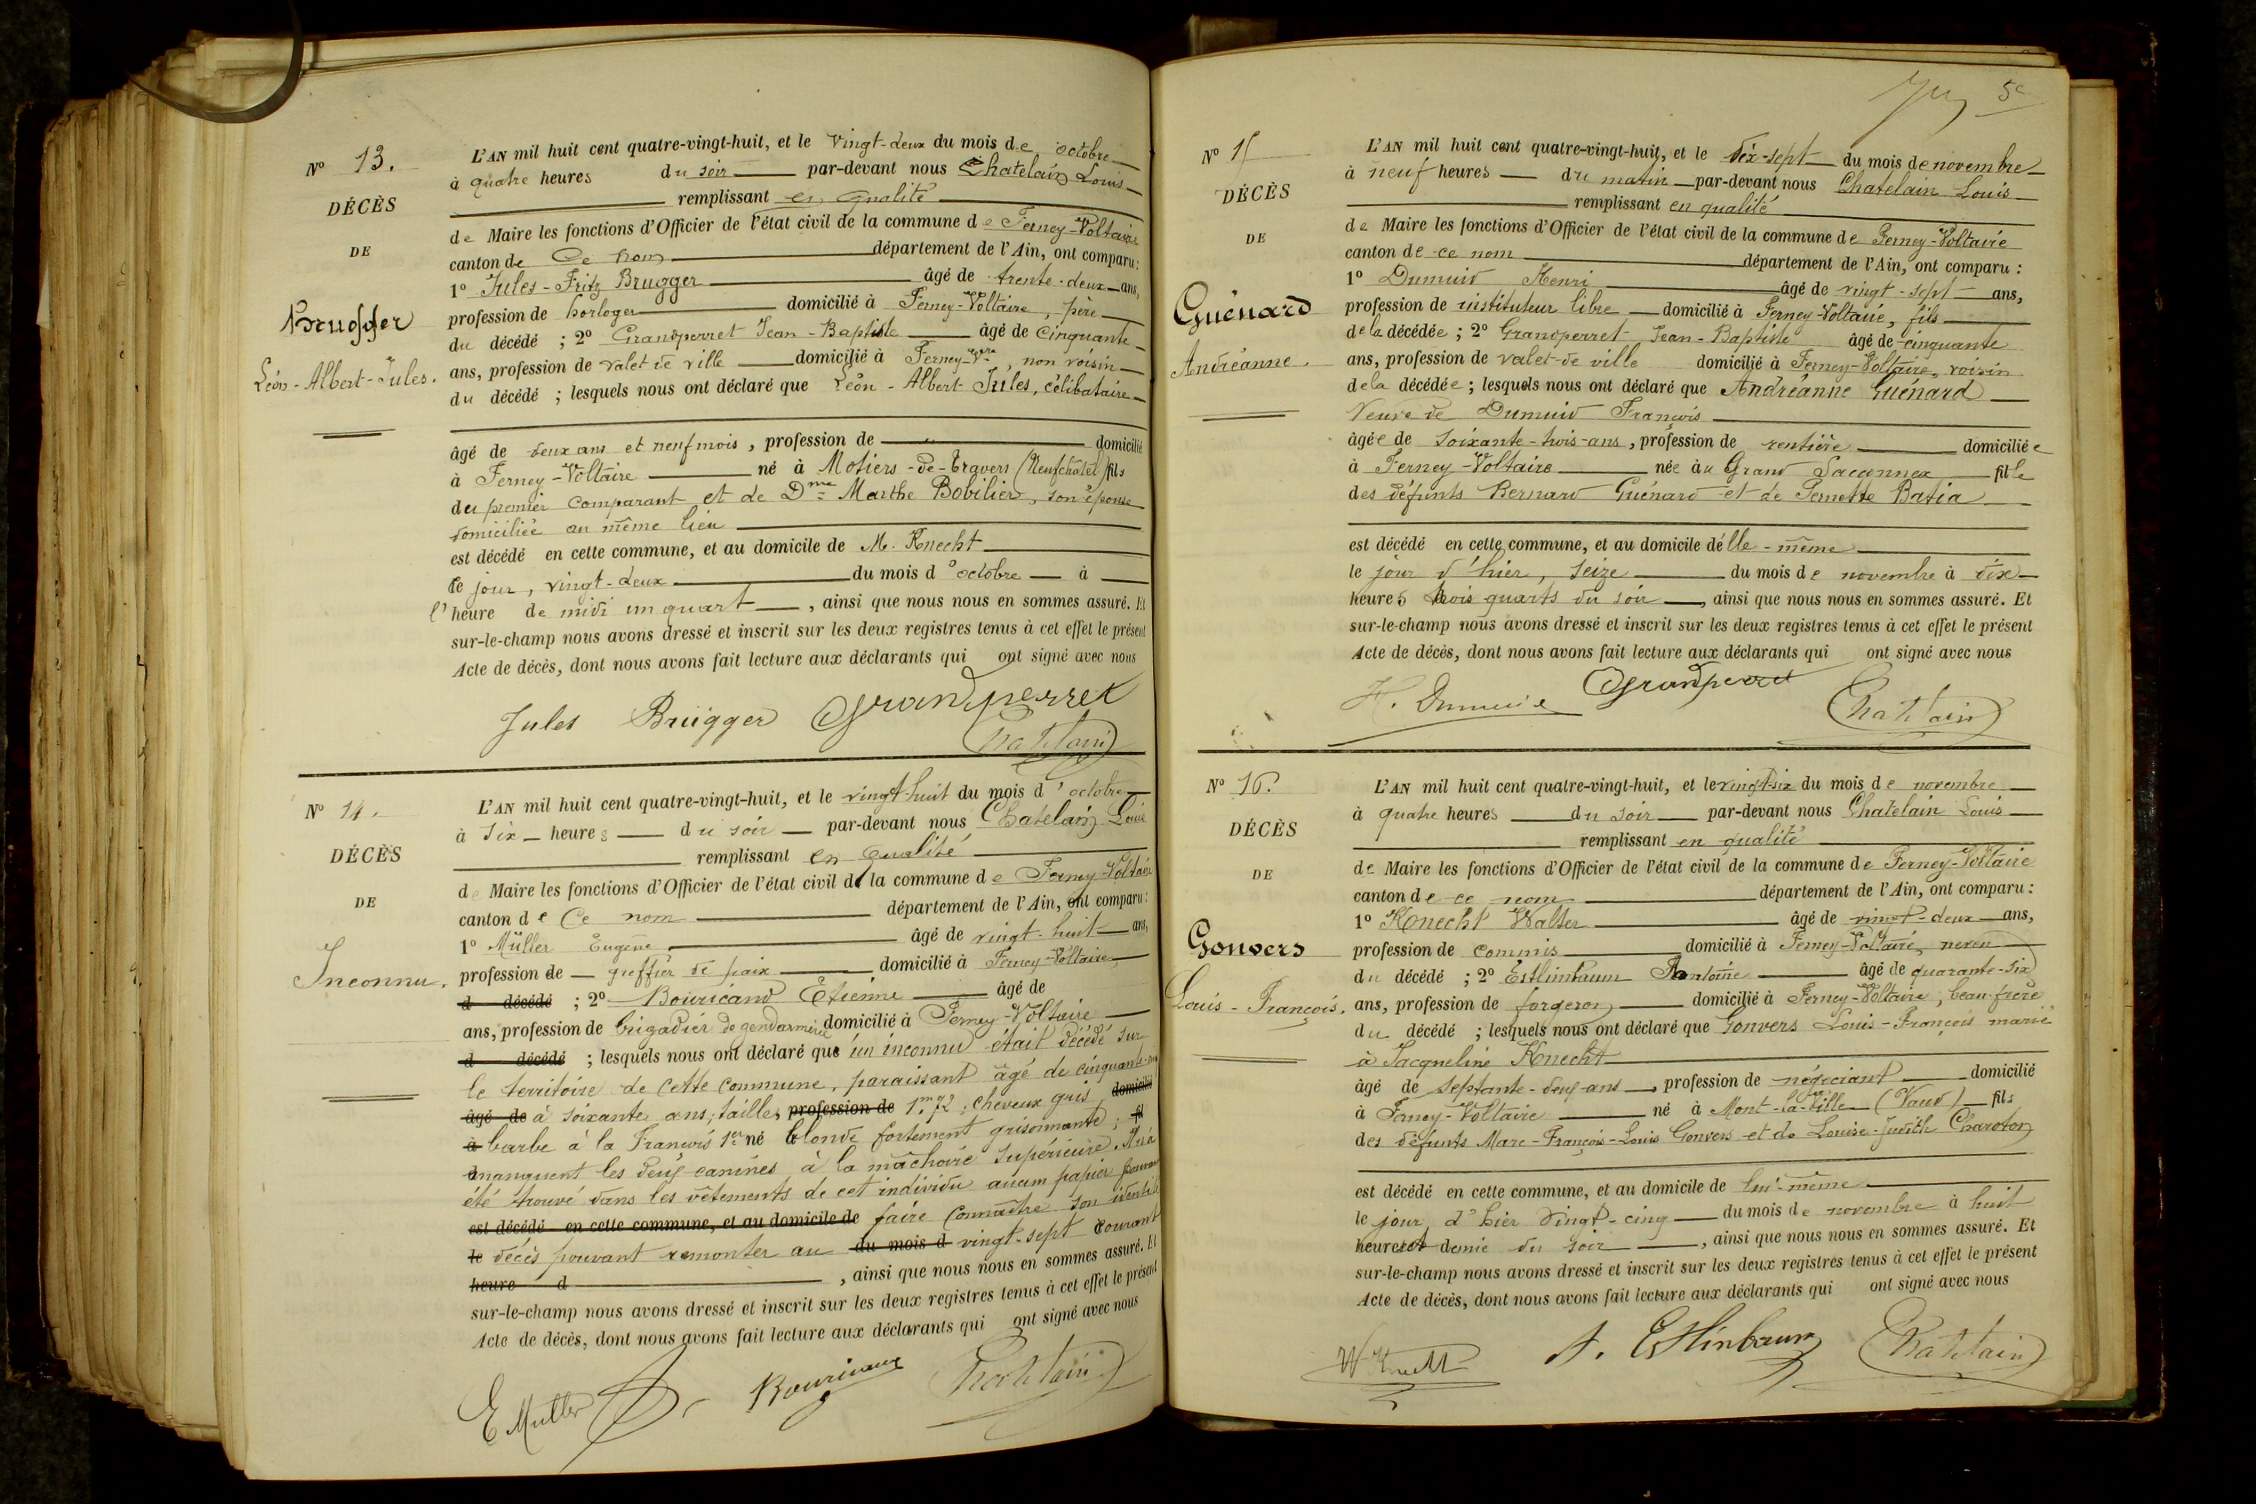 Nº 13.
DÉCÈS
DE
Brugger
Léon-Albert-Jules.
L'AN mil huit cent quatre-vingt-huit, et le vingt-deux du mois de octobre
à quatre heures du soir par-devant nous Chatelain Louis
remplissant en qualité
de Maire les fonctions d'Officier de l'état civil de la commune de Ferney-Voltaire
canton de Ce nom département de l'Ain, ont comparu :
1º Jules-Fritz Brugger âgé de trente-deux ans,
profession de horloger domicilié à Ferney-Voltaire, père
du décédé ; 2º Grandperret Jean-Baptiste âgé de cinquante
ans, profession de valet de ville domicilié à Ferney-Vre, non voisin
du décédé ; lesquels nous ont déclaré que Léon-Albert Jules, célibataire
âgé de deux ans et neuf mois, profession de domicilié
à Ferney-Voltaire né à Motiers-de-Travers (Neufchâtel) fils
du premier comparant et de Dme Marthe Bobilier, son épouse
domiciliée au même lieu
est décédé en cette commune, et au domicile de M. Knecht
ce jour, vingt-deux du mois d'octobre à
l'heure de midi un quart, ainsi que nous nous en sommes assuré. Et
sur-le-champ nous avons dressé et inscrit sur les deux registres tenus à cet effet le présent
Acte de décès, dont nous avons fait lecture aux déclarants qui ont signé avec nous
Jules Brügger Grandperret Chatelain
Nº 14.
DÉCÈS
DE
Inconnu.
L'AN mil huit cent quatre-vingt-huit, et le vingt-huit du mois d'octobre
à six heures du soir par-devant nous Chatelain Louis
remplissant en qualité
de Maire les fonctions d'Officier de l'état civil de la commune de Ferney-Voltaire
canton de Ce nom département de l'Ain, ont comparu :
1º Müller Eugène âgé de vingt-huit ans,
profession de greffier de paix domicilié à Ferney-Voltaire,
d décédé ; 2º Bouricand Étienne âgé de
ans, profession de brigadier de gendarmerie domicilié à Ferney-Voltaire
d décédé ; lesquels nous ont déclaré que un inconnu était décédé sur
le territoire de cette commune, paraissant âgé de cinquante
âgé de à soixante ans; taille, profession de 1m72; cheveux gris, domicilié
à barbe à la François 1er né blonde fortement grisonnante; fil
manquent les deux canines à la mâchoire supérieure. Il n'a
été trouvé dans les vêtements de cet individu aucun papier pouvant
est décédé en cette commune, et au domicile de faire connaître son identité
le décès pouvant remonter au du mois d vingt-sept courant
heure d , ainsi que nous nous en sommes assuré. Et
sur-le-champ nous avons dressé et inscrit sur les deux registres tenus à cet effet le présent
Acte de décès, dont nous avons fait lecture aux déclarants qui ont signé avec nous
E Muller Bouricand Chatelain
Nº 15
DÉCÈS
DE
Guénard
Andréanne
L'AN mil huit cent quatre-vingt-huit, et le dix-sept du mois de novembre
à neuf heures du matin par-devant nous Chatelain Louis
remplissant en qualité
de Maire les fonctions d'Officier de l'état civil de la commune de Ferney-Voltaire
canton de ce nom département de l'Ain, ont comparu :
1º Dumuid Henri âgé de vingt-sept ans,
profession de instituteur libre domicilié à Ferney-Voltaire, fils
de la décédée ; 2º Grandperret Jean-Baptiste âgé de cinquante
ans, profession de valet-de ville domicilié à Ferney-Voltaire, voisin
de la décédée ; lesquels nous ont déclaré que Andréanne Guénard
Veuve de Dumuid François
âgée de soixante-trois-ans, profession de rentière domiciliée
à Ferney-Voltaire née au Grand Saconnex fille
des défunts Bernard Guénard et de Pernette Batia
est décédé en cette commune, et au domicile d'elle-même
le jour d'hier, seize du mois de novembre à dix
heures trois quarts du soir, ainsi que nous nous en sommes assuré. Et
sur-le-champ nous avons dressé et inscrit sur les deux registres tenus à cet effet le présent
Acte de décès, dont nous avons fait lecture aux déclarants qui ont signé avec nous
H. Dumuid Grandperret Chatelain
Nº 16.
DÉCÈS
DE
Gonvers
Louis-François.
L'AN mil huit cent quatre-vingt-huit, et le vingt-six du mois de novembre
à quatre heures du soir par-devant nous Chatelain Louis
remplissant en qualité
de Maire les fonctions d'Officier de l'état civil de la commune de Ferney-Voltaire
canton de ce nom département de l'Ain, ont comparu :
1º Knecht Walter âgé de vingt-deux ans,
profession de commis domicilié à Ferney-Voltaire, neveu
du décédé ; 2º Estlinbaum Antoine âgé de quarante-six
ans, profession de forgeron domicilié à Ferney-Voltaire, beau-frère
du décédé ; lesquels nous ont déclaré que Gonvers Louis-François marié
à Jacqueline Knecht
âgé de septante-deux-ans, profession de négociant domicilié
à Ferney-Voltaire né à Mont-la-Ville (Vaud) fils
des défunts Marc-François-Louis Gonvers et de Louise-Judith Charoton
est décédé en cette commune, et au domicile de lui-même
le jour d'hier vingt-cinq du mois de novembre à huit
heures et demie du soir, ainsi que nous nous en sommes assuré. Et
sur-le-champ nous avons dressé et inscrit sur les deux registres tenus à cet effet le présent
Acte de décès, dont nous avons fait lecture aux déclarants qui ont signé avec nous
W Knecht A. Estlinbaum Chatelain